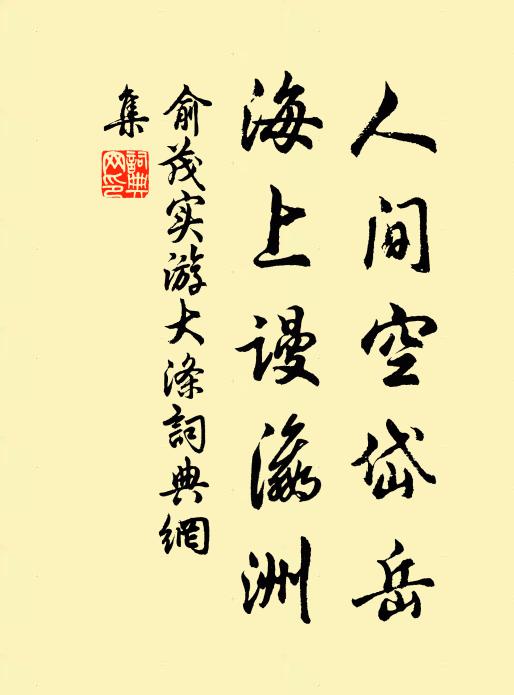 人间空岱岳
海上谩瀛洲
俞茂实游大涤詞典網
集
詞典网印